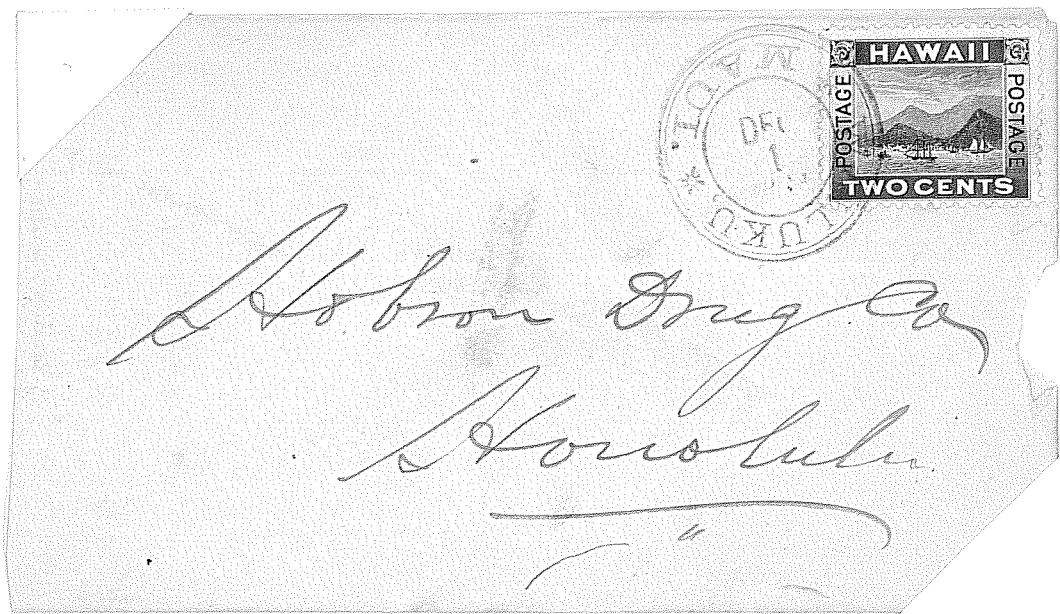 HAWAII
POSTAGE
POSTAGE
TWO CENTS
MAUI
LUKU
1
Hobson Drug Co,
Honolulu